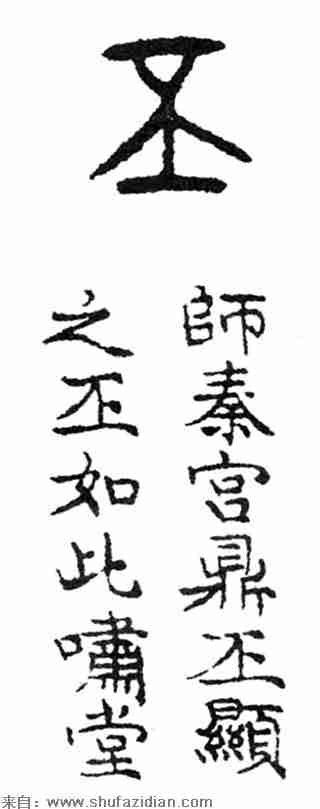 丕
師秦宫鼎丕顯
之丕如此嘯堂
来自：www.shufazidian.com